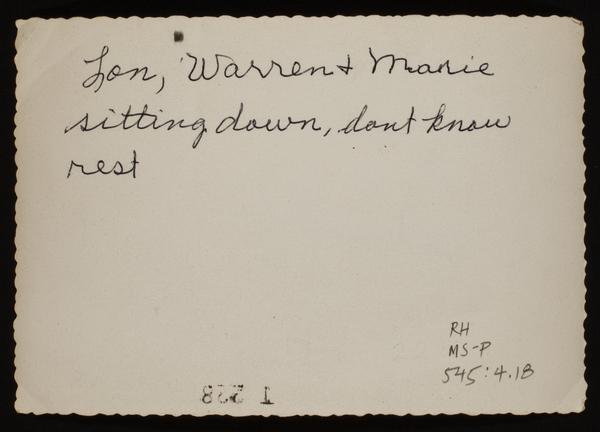 Lon, Warren + Marie
sitting down, dont know
rest
RH
MS-P
545:4.18